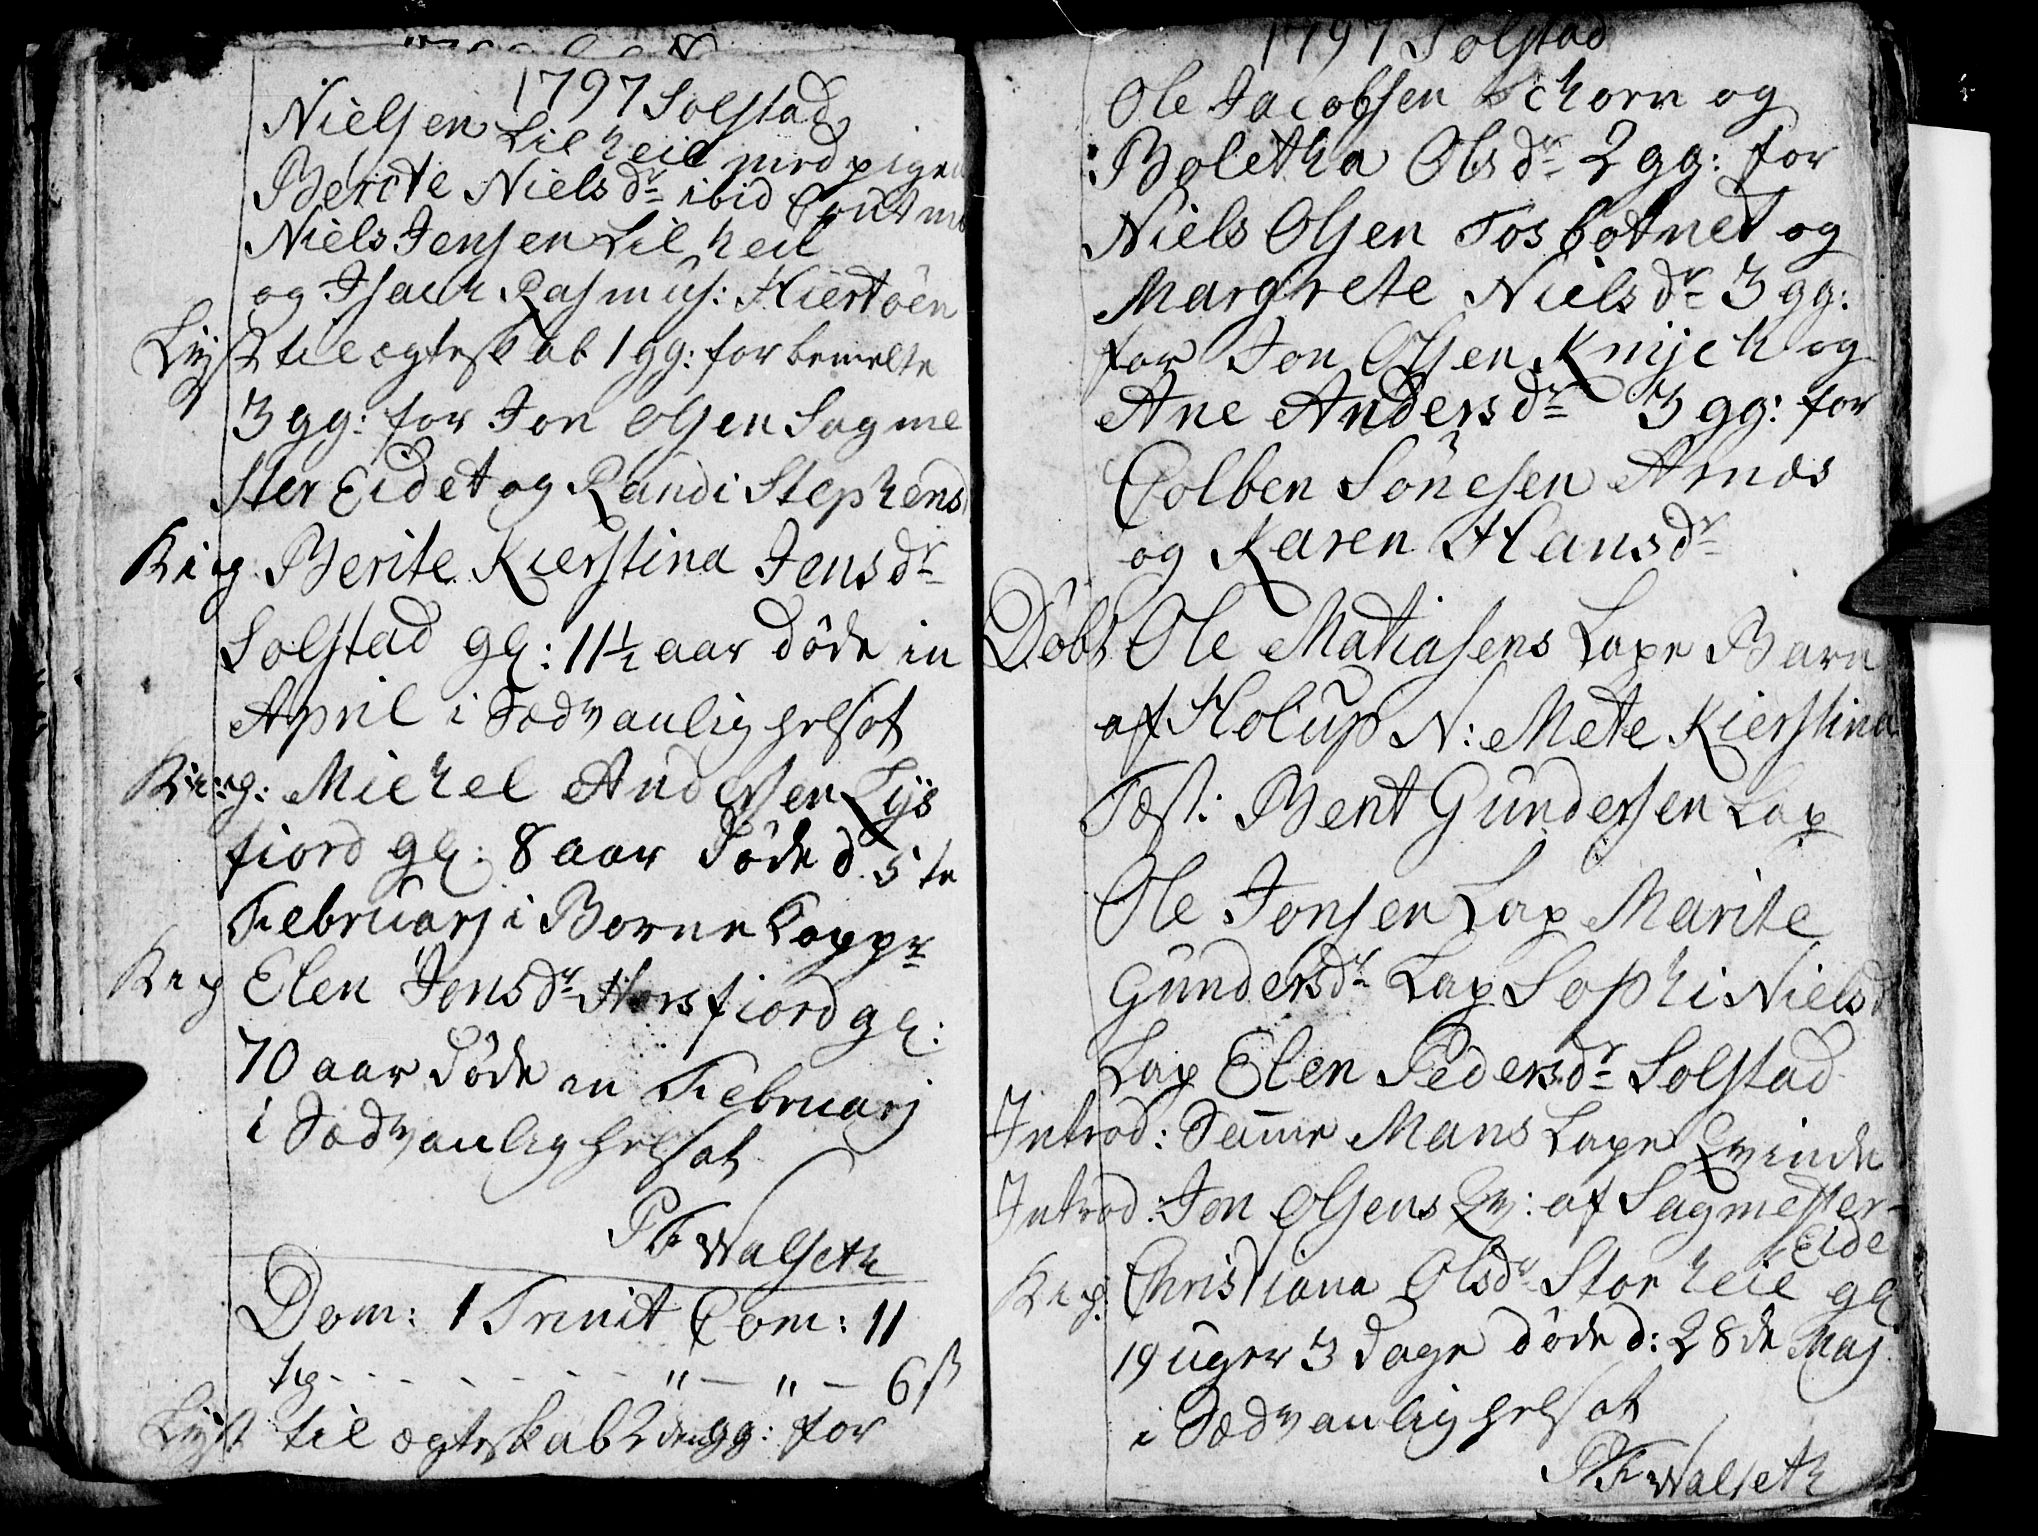 1797 Solstad
Nielsen Lilheil med pigen
Berete Nielsdr ibid Cout
Niels Jensen Lilheil
og Isach Rasmus: Hiertöen
Lyst til ægteskab 1 gg: for bemelte
3 gg: for Jon Olsen Sagme
ster Eidet og Randi Stephens
Kig Berite Kierstina Jensdr
Solstad gl: 11½ aar döde in
April i Sædvanlig helsot
King: Michel Andersen Tijs
fiord gl: 8 aar döde d. 5te
Februarj i Borne Kopper
Kig Elen Jonsdr Horsfiord gl:
70 aar döde in Februarj
i Sædvanlig helsot
PF Walseth
Dom: 1 Trinit Com: 11
tg - - - - - - - " - " - 6 ß
Lyst til ægteskab 2den gg: for
1797 Solstad
Ole Jacobsen Schorn og
Boletha Olsdr 2 gg: for
Niels Olsen Tosbotnet og
Margrete Nielsdr 3 gg:
for Jon Olsen Knijch og
Ane Andersdr 3 gg: for
Colben Sönesen Arnæs
og Karen Hansdr
Döbt Ole Matiasens Lape Barn
af Holup N: Mete Kierstina
Test: Bent Gundersen Lap
Ole Jonsen Lap Marite
Gundersdr Lap Sophi Niels d
Lap Elen Pedersdr Solstad
Introd: Samme Mans Lape Qvinde
Introd: Jon Olsens Qv: af Sagmester-
Eide
Kig. Christiana Olsdr Storheil gl
19 uger 3 dage döde d: 28de Maj
i Sædvanlig helsot
PF Walseth